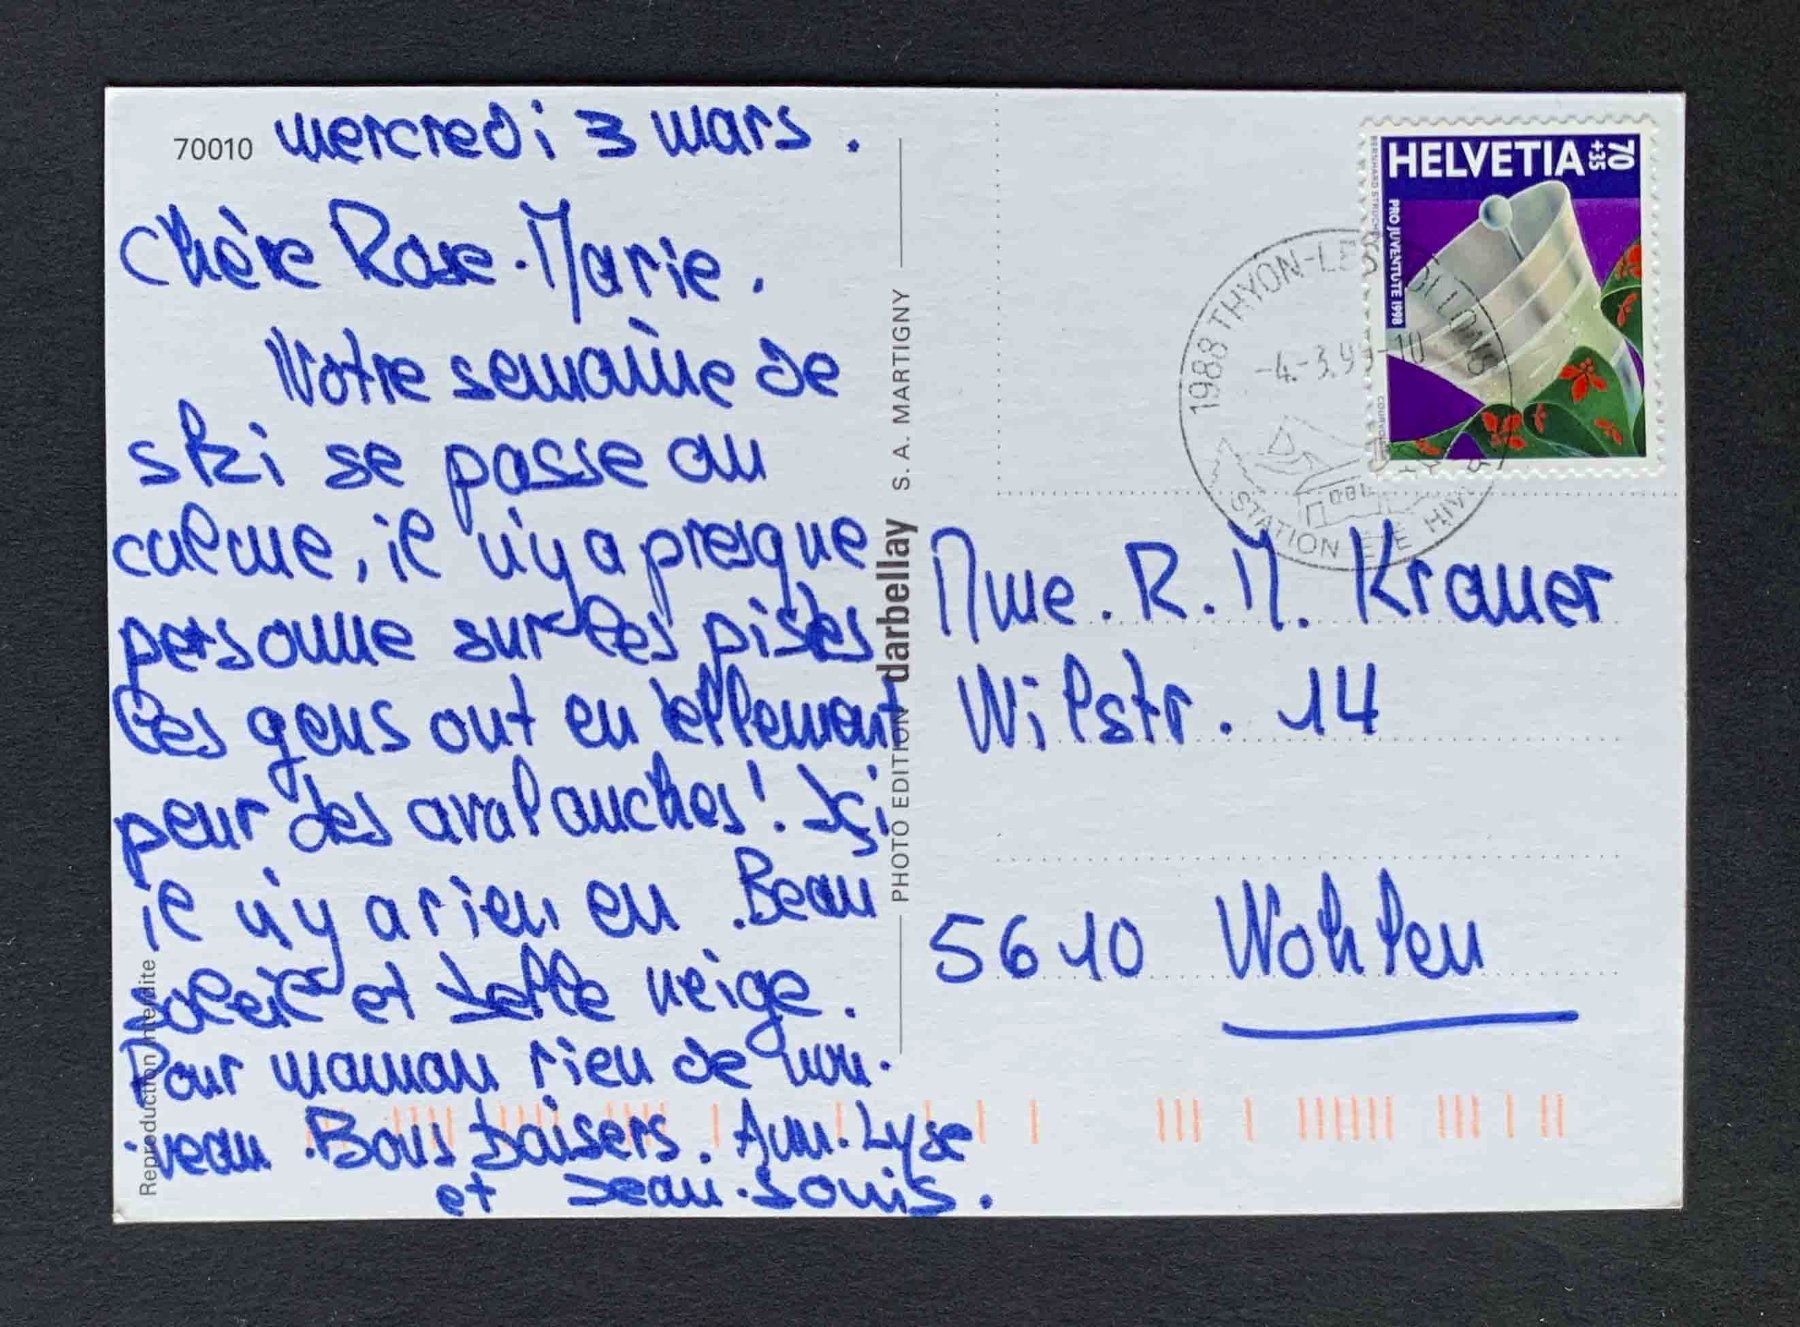 70010 mercredi 3 mars.
Chère Rose-Marie.
Notre semaine de
ski se passe au
calme, il n'y a presque
personne sur les pistes
Les gens ont eu tellement
peur des avalanches! Içi
il n'y a rien eu. Beau
soleil et belle neige.
Pour maman rien de nou-
veau. Bons baisers. Ann-Lyse
et Jean-Louis.
Reproduction interdite
PHOTO EDITION darbellay S. A. MARTIGNY
HELVETIA 70
+35
PRO JUVENTUTE 1998
BERNHARD STRUCHEN
1988 THYON-LES COLLONS
-4.-3.99-10
STATION ÉTÉ HIVER
Mme. R. M. Krauer
Wilstr. 14
5610 Wohlen